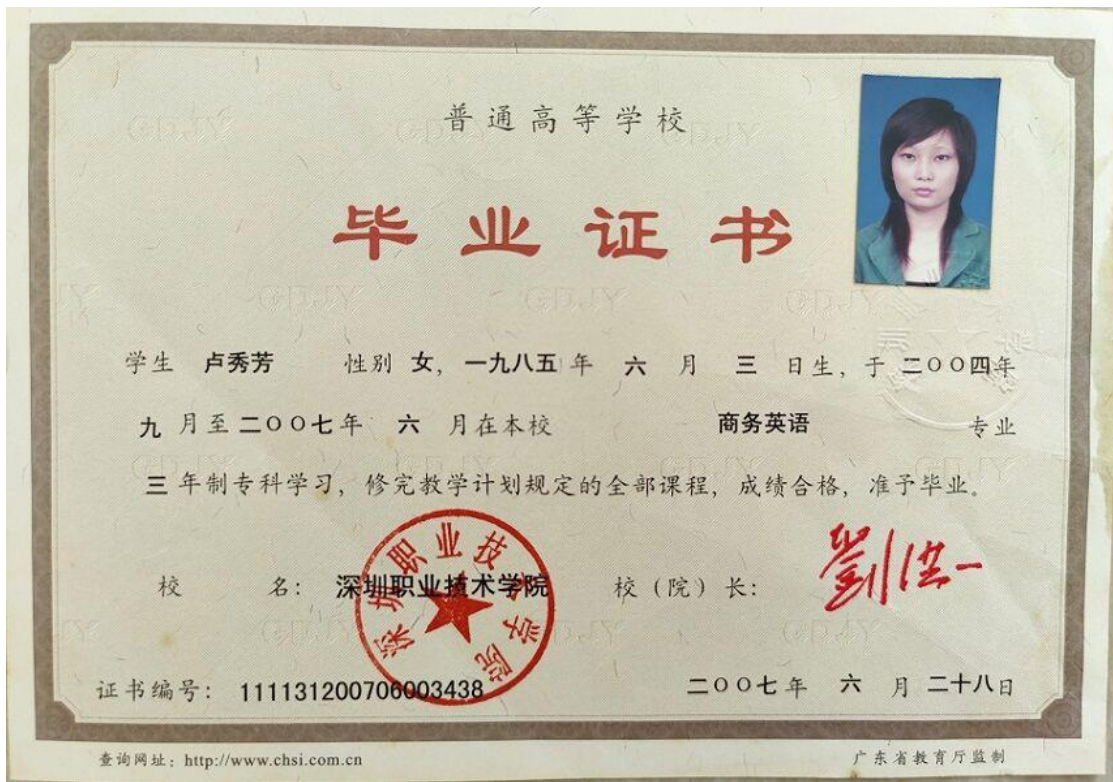 普通高等学校
毕业证书
学生 卢秀芳 性别 女，一九八五年 六 月 三 日生，于 二〇〇四年
九 月至 二〇〇七年 六 月在本校 商务英语 专业
三 年制专科学习，修完教学计划规定的全部课程，成绩合格，准予毕业。
校 名：深圳职业技术学院 校（院）长：劉洪一
深圳职业技术学院
证书编号：111131200706003438 二〇〇七年 六 月 二十八日
查询网址：http://www.chsi.com.cn 广东省教育厅监制
GDJY